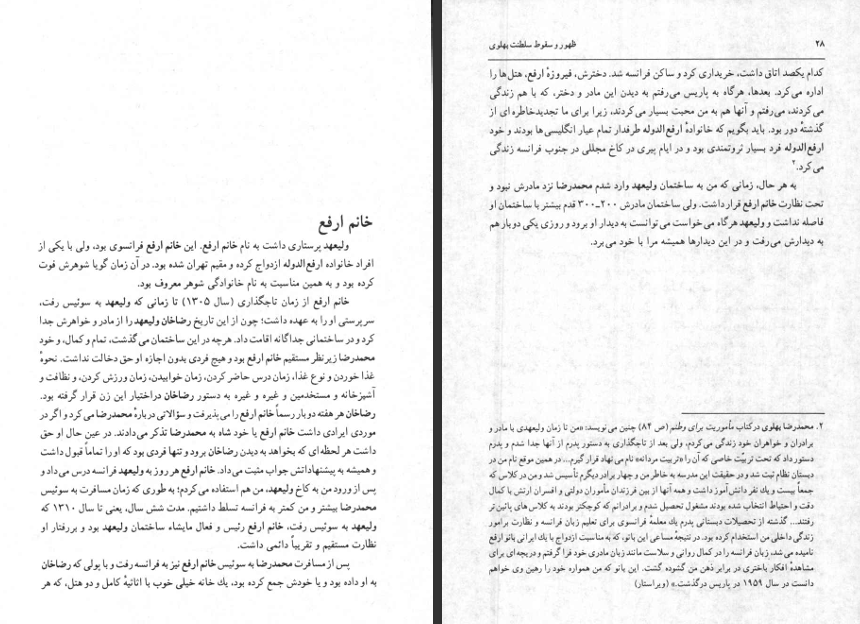 خانم ارفع
ولیعهد پرستاری داشت به نام خانم ارفع. این خانم ارفع فرانسوی بود، ولی با یکی از
افراد خانواده ارفع‌الدوله ازدواج کرده و مقیم تهران شده بود. در آن زمان گویا شوهرش فوت
کرده بود و به همین مناسبت به نام خانوادگی شوهر معروف بود.
خانم ارفع از زمان تاجگذاری (سال ۱۳۰۵) تا زمانی که ولیعهد به سوئیس رفت،
سرپرستی او را به عهده داشت؛ چون از این تاریخ رضاخان ولیعهد را از مادر و خواهرش جدا
کرد و در ساختمانی جداگانه اقامت داد. هرچه در این ساختمان می‌گذشت، تمام و کمال، و خود
محمدرضا زیر نظر مستقیم خانم ارفع بود و هیچ فردی بدون اجازه او حق دخالت نداشت. نحوهٔ
غذا خوردن و نوع غذا، زمان درس حاضر کردن، زمان خوابیدن، زمان ورزش کردن، و نظافت و
آشپزخانه و مستخدمین و غیره و غیره به دستور رضاخان دراختیار این زن قرار گرفته بود.
رضاخان هر هفته دو بار رسماً خانم ارفع را می‌پذیرفت و سؤالاتی دربارهٔ محمدرضا می‌کرد و اگر در
موردی ایرادی داشت خانم ارفع یا خود شاه به محمدرضا تذکر می‌دادند. در عین حال او حق
داشت هر لحظه‌ای که بخواهد به دیدن رضاخان برود و تنها فردی بود که او را تماماً قبول داشت
و همیشه به پیشنهاداتش جواب مثبت می‌داد. خانم ارفع هر روز به ولیعهد فرانسه درس می‌داد و
پس از ورود من به کاخ ولیعهد، من هم استفاده می‌کردم؛ به طوری که زمان مسافرت به سوئیس
محمدرضا بیشتر و من کمتر به فرانسه تسلط داشتیم. مدت شش سال، یعنی تا سال ۱۳۱۰ که
ولیعهد به سوئیس رفت، خانم ارفع رئیس و فعال مایشاء ساختمان ولیعهد بود و بر رفتار او
نظارت مستقیم و تقریباً دائمی داشت.
پس از مسافرت محمدرضا به سوئیس خانم ارفع نیز به فرانسه رفت و با پولی که رضاخان
به او داده بود و یا خودش جمع کرده بود، یك خانه خیلی خوب با اثاثیهٔ کامل و دو هتل، که هر
۲۸ ظهور و سقوط سلطنت پهلوی
کدام یکصد اتاق داشت، خریداری کرد و ساکن فرانسه شد. دخترش، فیروزهٔ ارفع، هتل‌ها را
اداره می‌کرد. بعدها، هرگاه به پاریس می‌رفتم به دیدن این مادر و دختر، که با هم زندگی
می‌کردند، می‌رفتم و آنها هم به من محبت بسیار می‌کردند، زیرا برای ما تجدیدخاطره ای از
گذشتهٔ دور بود. باید بگویم که خانوادهٔ ارفع‌الدوله طرفدار تمام عیار انگلیسی‌ها بودند و خود
ارفع‌الدوله فرد بسیار ثروتمندی بود و در ایام پیری در کاخ مجللی در جنوب فرانسه زندگی
می‌کرد.۲
به هر حال، زمانی که من به ساختمان ولیعهد وارد شدم محمدرضا نزد مادرش نبود و
تحت نظارت خانم ارفع قرار داشت. ولی ساختمان مادرش ۲۰۰-۳۰۰ قدم بیشتر با ساختمان او
فاصله نداشت و ولیعهد هرگاه می‌خواست می‌توانست به دیدار او برود و روزی یکی دوبار هم
به دیدارش می‌رفت و در این دیدارها همیشه مرا با خود می‌برد.
۲. محمدرضا پهلوی در کتاب مأموریت برای وطنم (ص ۸۴) چنین می‌نویسد: «من تا زمان ولیعهدی با مادر و
برادران و خواهران خود زندگی می‌کردم، ولی بعد از تاجگذاری به دستور پدرم از آنها جدا شدم و پدرم
دستور داد که تحت تربیّت خاصی که آن را «تربیت مردانه» نام می‌نهاد قرار گیرم... در همین موقع نام من در
دبستان نظام ثبت شد و در حقیقت این مدرسه به خاطر من و چهار برادر دیگرم تأسیس شد و من در کلاس که
جمعاً بیست و یك نفر دانش‌آموز داشت و همه آنها از بین فرزندان مأموران دولتی و افسران ارتش با کمال
دقت و احتیاط انتخاب شده بودند مشغول تحصیل شدم و برادرانم که کوچکتر بودند به کلاس های پائین تر
رفتند... گذشته از تحصیلات دبستانی پدرم یك معلمهٔ فرانسوی برای تعلیم زبان فرانسه و نظارت برامور
زندگی داخلی من استخدام کرده بود. در نتیجهٔ مساعی این بانو، که به مناسبت ازدواج با یك ایرانی بانو ارفع
نامیده می‌شد، زبان فرانسه را در کمال روانی و سلاست مانند زبان مادری خود فرا گرفتم و دریچه‌ای برای
مشاهدهٔ افکار باختری در برابر ذهن من گشوده گشت. این بانو که من همواره خود را رهین وی خواهم
دانست در سال ۱۹۵۹ در پاریس درگذشت.» (ویراستار)